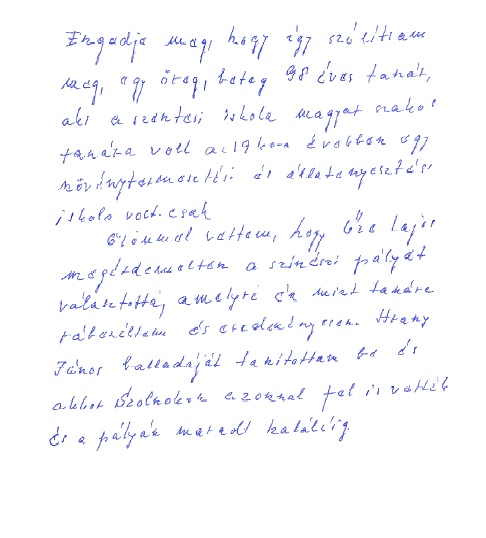 Engedje meg, hogy így szólítsam
meg, egy öreg, beteg 98 éves tanár,
aki a szentesi iskola magyar szakos
tanára volt az 1960-as években egy
növénytermesztési és állattenyésztési
iskola volt csak
Örömmel vettem, hogy Őze Lajos
megérdemelten a színészi pályát
választotta, amelyre én mint tanára
rábeszéltem és eredményesen. Arany
János balladáját tanítottam be és
akkor Szolnokon azonnal fel is vették
és a pályán maradt haláláig.